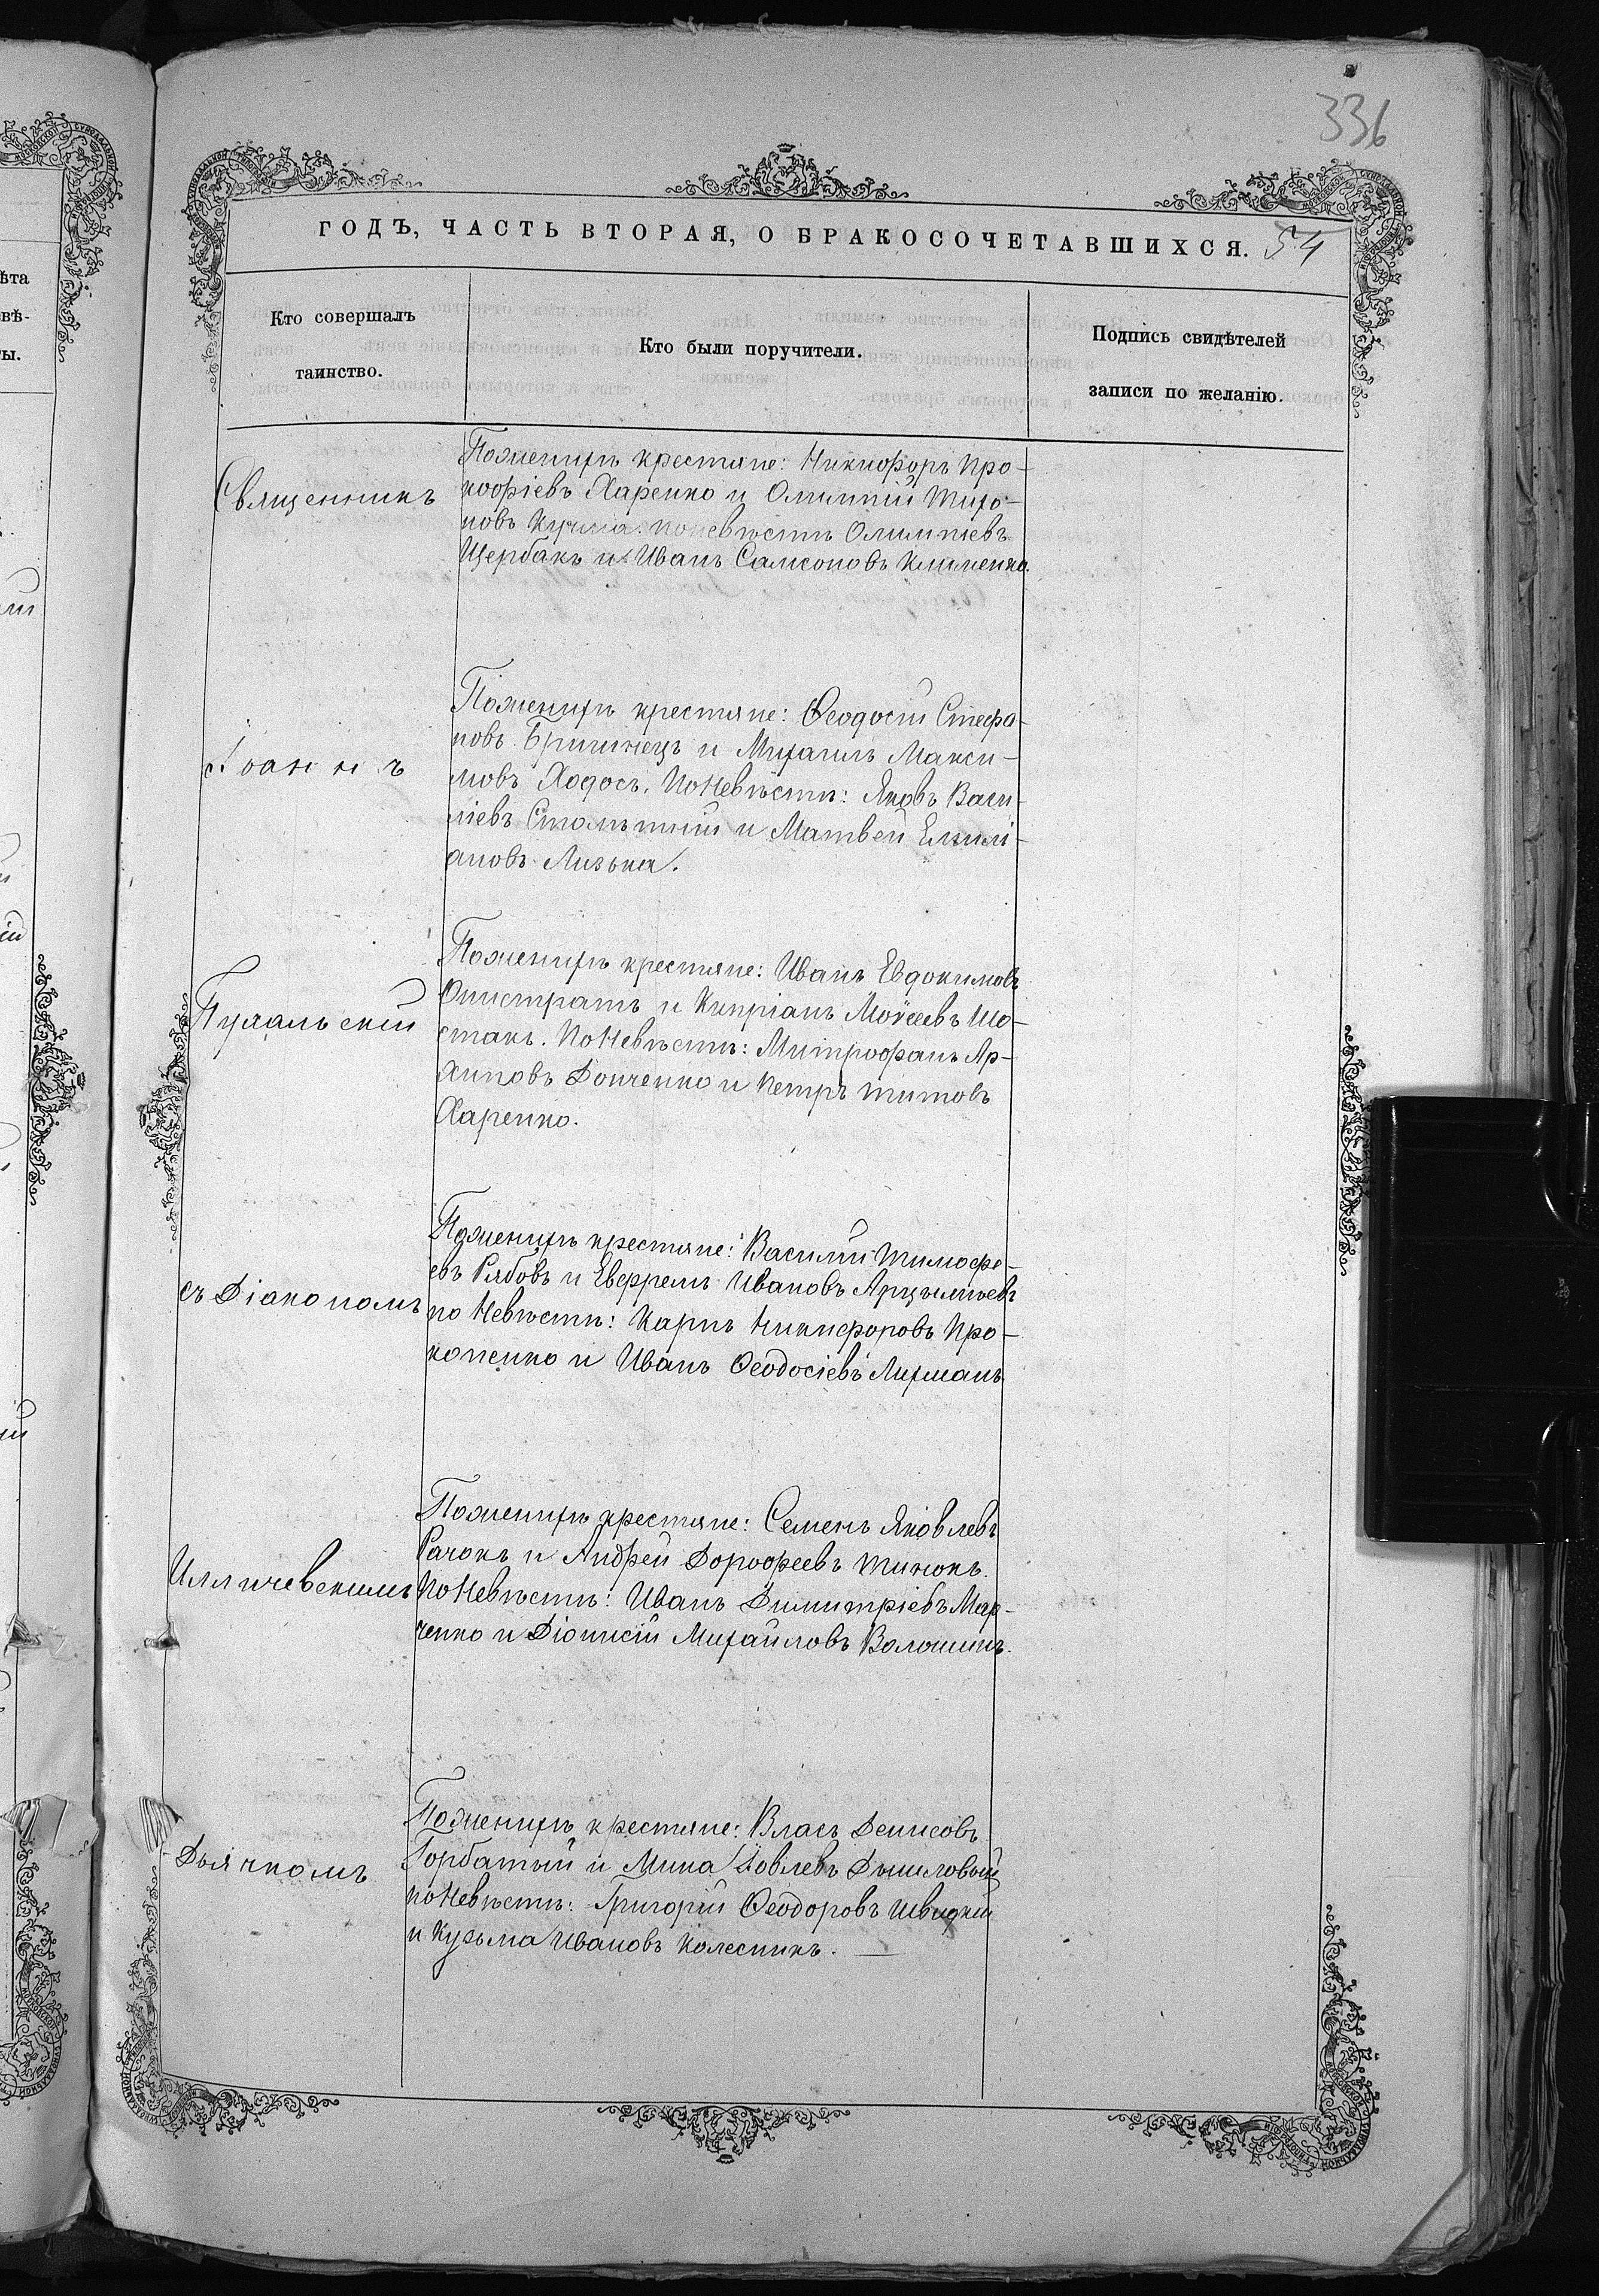 336
ГОДЪ, ЧАСТЬ ВТОРАЯ, О БРАКОСОЧЕТАВШИХСЯ. 54
Кто совершалъ
таинство.
Кто были поручители.
Подпись свидѣтелей
записи по желанію.
Священникъ
Поженихѣ крестяне: Никифоръ Про-
кофіевъ Харенко и Олимпій Тихо-
новъ Кучма. поневѣстѣ Олимпіевъ
Щербакъ и Иванъ Самсоновъ Клименко.
Іоаннъ
Поженихѣ крестяне: Ѳеодосій Стефа-
новъ Бригинецъ и Михаилъ Макси-
мовъ Ходосъ. ПоНевѣстѣ: Яковъ Васи-
ліевъ и Матвей Емилі-
ановъ Лизька.
Поженихѣ крестяне: Иванъ Евдокимовъ
Онистратъ и Кипріанъ Моѵсеевъ Шо-
стакъ. ПоНевѣстѣ: Митрофанъ Ар-
хиповъ Донченко и Петръ Титовъ
Харенко.
съ Діакономъ
Поженихѣ крестяне: Василій Тимофе-
евъ Рябовъ и Евфремъ Ивановъ
по Невѣстѣ: Карпъ Никифоровъ Про-
копенко и Иванъ Ѳеодосіевъ Лихманъ
Илличевскимъ
Поженихѣ крестяне: Семенъ Яковлевъ
Рачокъ и Андрей Дорофеевъ
ПоНевѣстѣ: Иванъ Димитріевъ Мар-
ченко и Діонисій Михайловъ Волошинъ.
Дьячкомъ
Поженихѣ крестяне: Власъ Денисовъ
Горбатый и Мина Іовлевъ
поНевѣстѣ: Григорій Ѳеодоровъ Швидкій
и Кузьма Ивановъ Колесникъ.